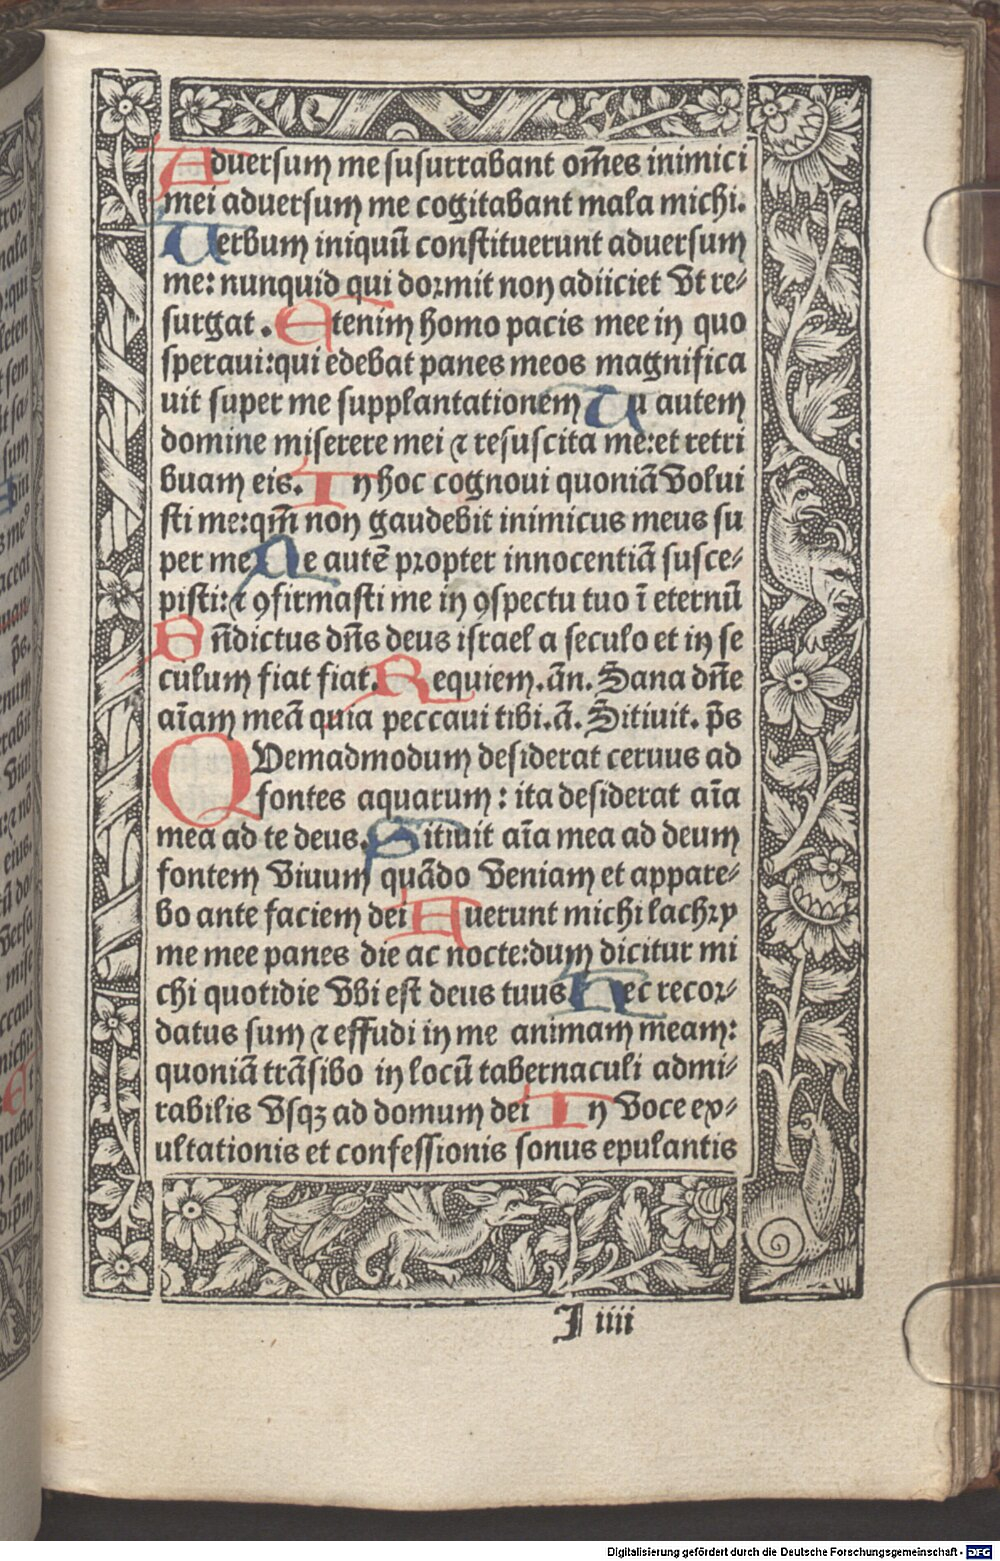 Aduersum me susurrabant om̄es inimici
mei aduersum me cogitabant mala michi.
Uerbum iniquū constituerunt aduersum
me: nunquid qui dormit non adiiciet vt re-
surgat. Etenim homo pacis mee in quo
speraui:qui edebat panes meos magnifica
uit super me supplantationem Tu autem
domine miserere mei ⁊ resuscita me:et retri
buam eis. In hoc cognoui quoniā volui
sti me:qm̄ non gaudebit inimicus meus su
per me Me autē propter innocentiā susce-
pisti:⁊ ꝯfirmasti me in ꝯspectu tuo ī eternū
Bn̄dictus dn̄s deus israel a seculo et in se
culum fiat fiat. Requiem.ān. Sana dn̄e
aīam meā quia peccaui tibi.ā. Sitiuit. p̄s
QUemadmodum desiderat ceruus ad
fontes aquarum: ita desiderat aīa
mea ad te deus. Sitiuit aīa mea ad deum
fontem viuum quādo veniam et appare-
bo ante faciem dei Fuerunt michi lachry
me mee panes die ac nocte:dum dicitur mi
chi quotidie vbi est deus tuus Hec recor-
datus sum ⁊ effudi in me animam meam:
quoniā trāsibo in locū tabernaculi admi-
rabilis vsqꝫ ad domum dei In voce ex-
ultationis et confessionis sonus epulantis
I iiii
Digitalisierung gefördert durch die Deutsche Forschungsgemeinschaft - DFG